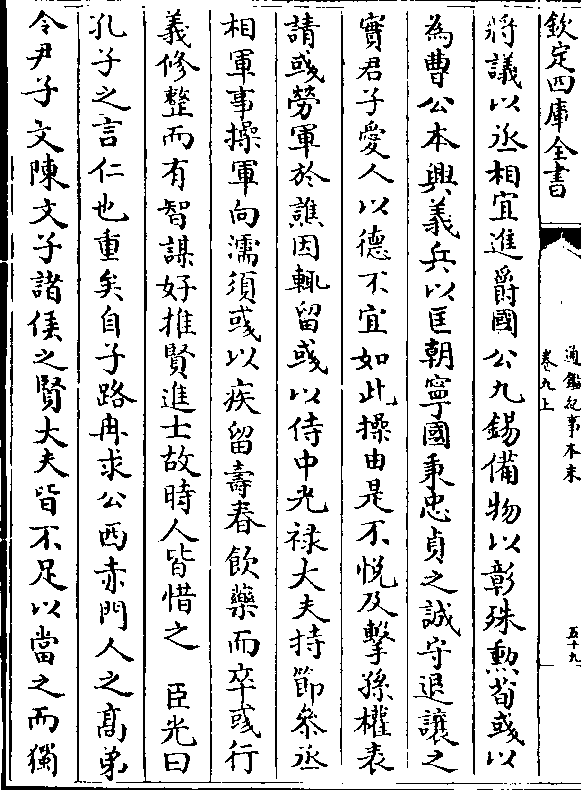 欽定四庫全書
通鑑紀事本末
卷九上
五十九
將議以丞相宜進爵國公九錫備物以彰殊勲荀彧以
為曹公本興義兵以匡朝寧國秉忠貞之誠守退讓之
實君子愛人以德不宜如此操由是不悅及擊孫權表
請彧勞軍於譙因輒留彧以侍中光祿大夫持節參丞
相軍事操軍向濡須彧以疾留壽春飲藥而卒彧行
義修整而有智謀好推賢進士故時人皆惜之　臣光曰
孔子之言仁也重矣自子路冉求公西赤門人之髙弟
令尹子文陳文子諸侯之賢大夫皆不足以當之而獨